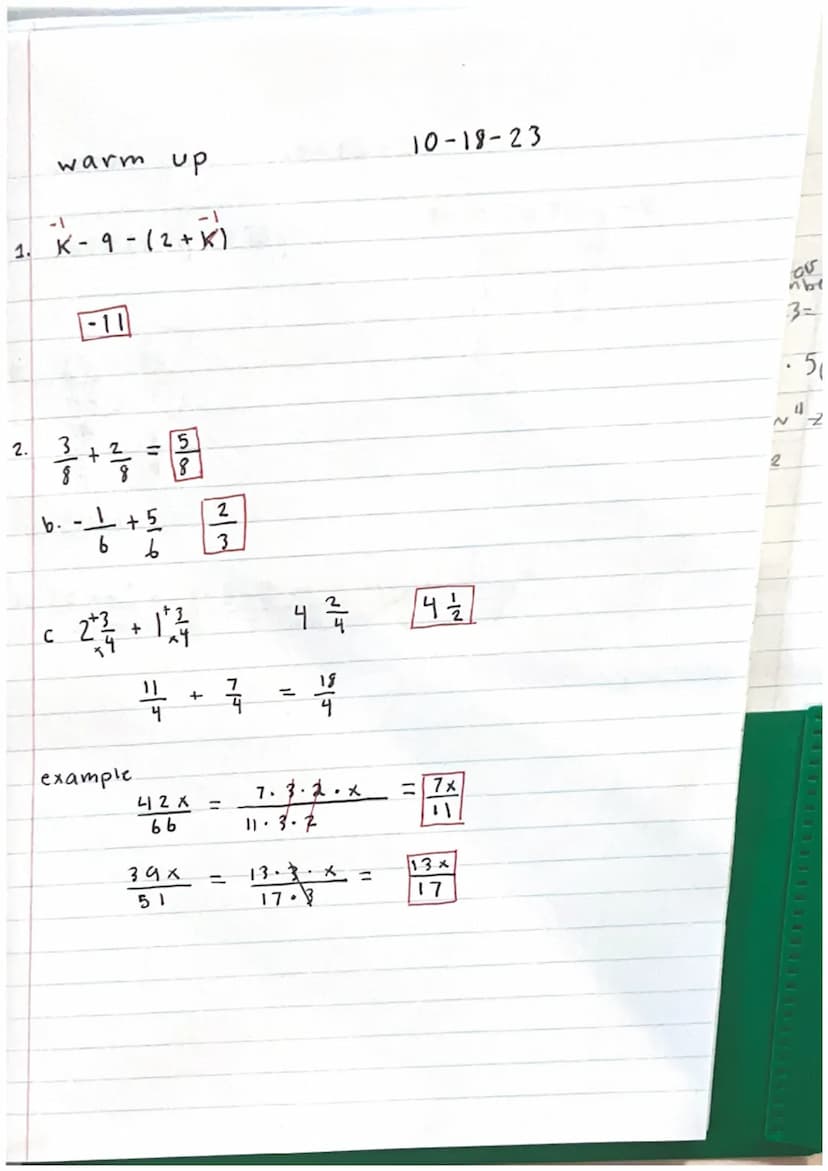 warm up 10-18-23
-1 -1
1. K - 9 - (2 + K)
-11
2. 3/8 + 2/8 = 5/8
b. - 1/6 + 5/6 2/3
c 2 +3/×4 + 1 +3/×4 4 2/4 4 1/2
11/4 + 7/4 = 18/4
example
42x/66 = 7·3·2·x/11·3·2 = 7x/11
39x/51 = 13·3·x/17·3 = 13x/17
3=
2